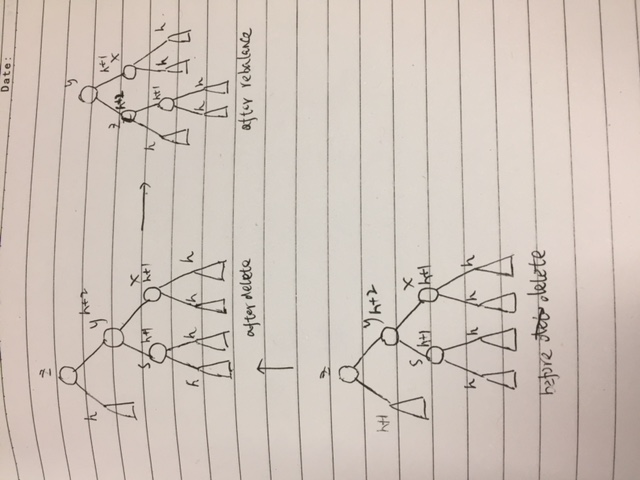 Date:
z
h
y h+2
s h+1
x h+1
h h h h
after delete
y
z h+2
h+1 x
h h+1 h h
h h
after rebalance
z
h+1
y h+2
s h+1
x h+1
h h h h
before delete